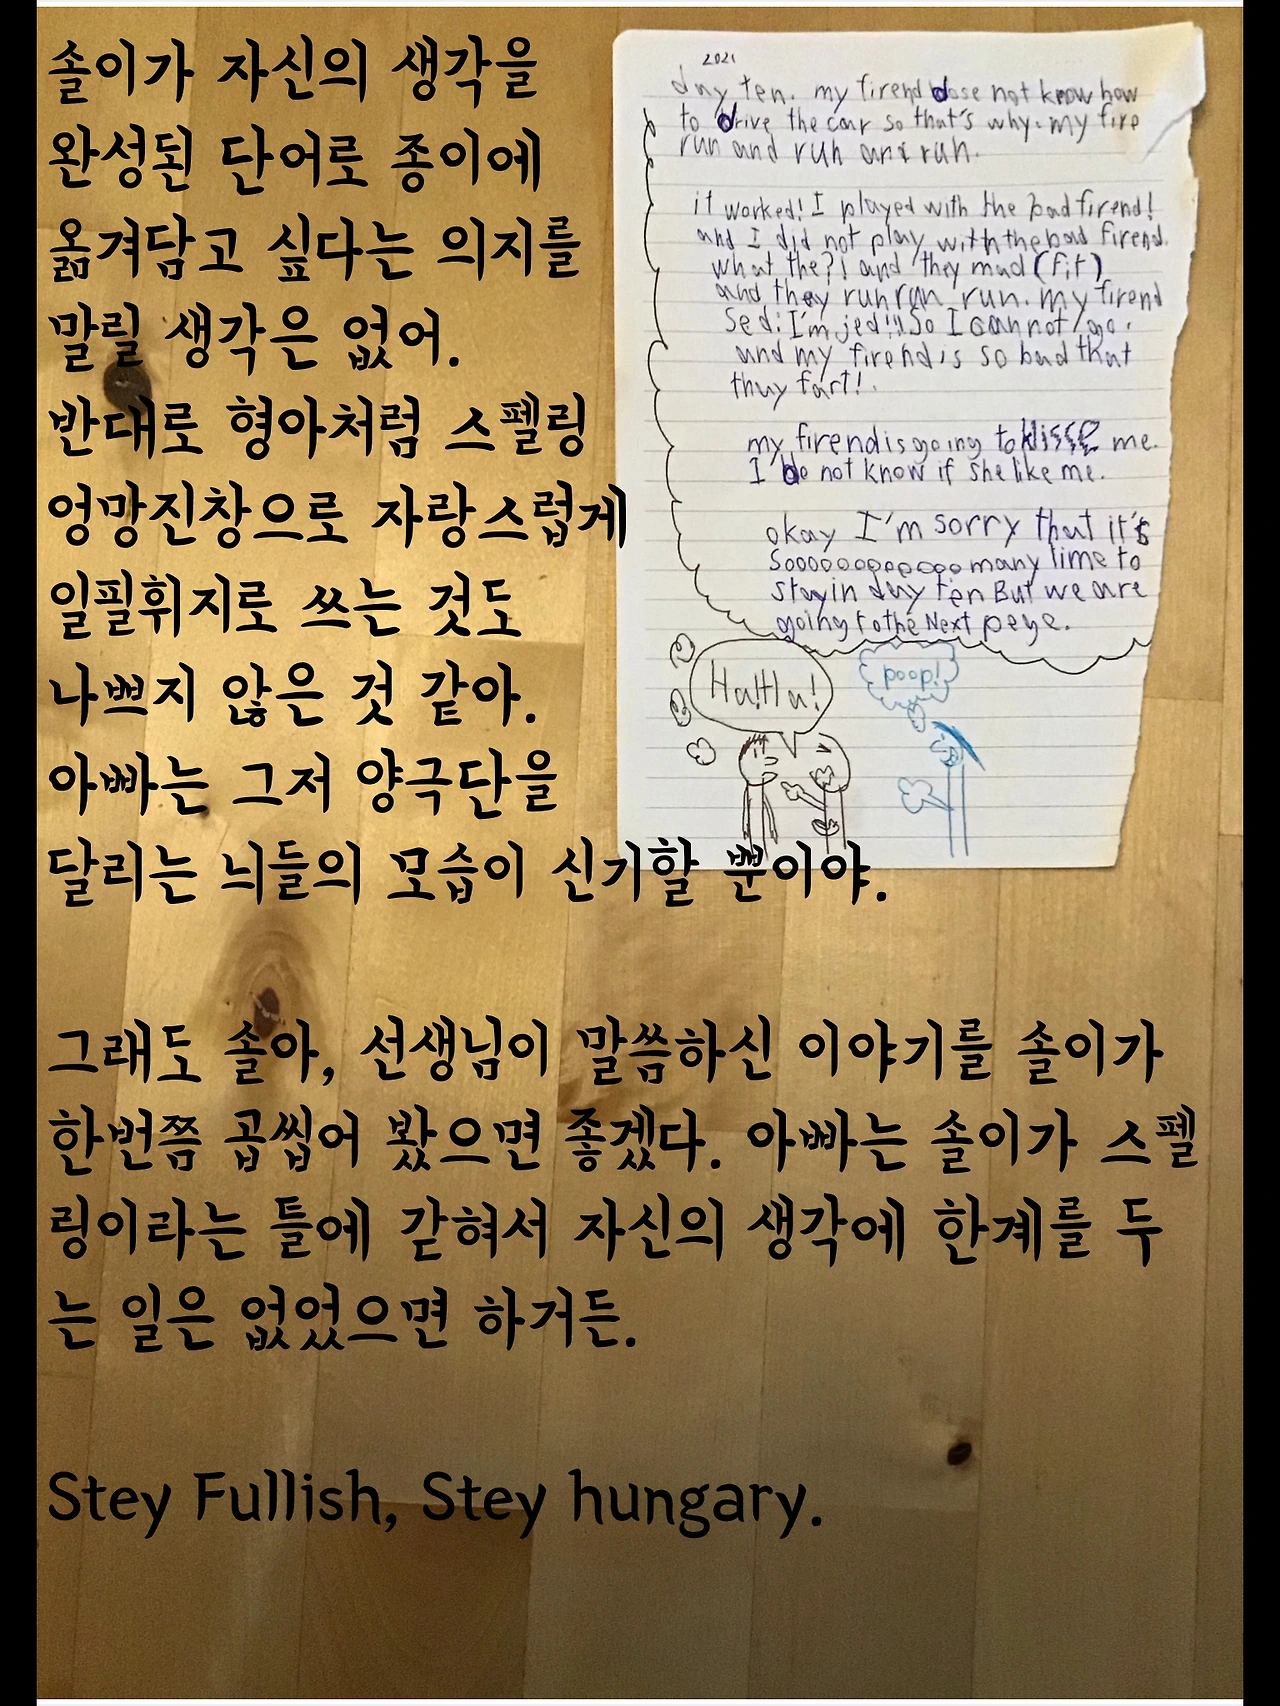 솔이가 자신의 생각을
완성된 단어로 종이에
옮겨담고 싶다는 의지를
말릴 생각은 없어.
반대로 형아처럼 스펠링
엉망진창으로 자랑스럽게
일필휘지로 쓰는 것도
나쁘지 않은 것 같아.
아빠는 그저 양극단을
달리는 늬들의 모습이 신기할 뿐이야.
그래도 솔아, 선생님이 말씀하신 이야기를 솔이가
한번쯤 곱씹어 봤으면 좋겠다. 아빠는 솔이가 스펠
링이라는 틀에 갇혀서 자신의 생각에 한계를 두
는 일은 없었으면 하거든.
Stey Fullish, Stey hungary.
2021
day ten. my firend dose not know how
to drive the car so that's why. my fire
run and run and run.
it worked! I played with the bad firend!
and I did not play with the bad firend.
what the?! and they mad (fit)
and they run run run. my firend
sed: I'm jed!! So I cannot go.
and my firend is so bad that
thuy fart!.
my firend is going to me.
I do not know if she like me.
okay I'm sorry that it's
Sooooooooooooo many time to
stay in day ten But we are
going to the Next pege.
Ha!Ha!
poop!